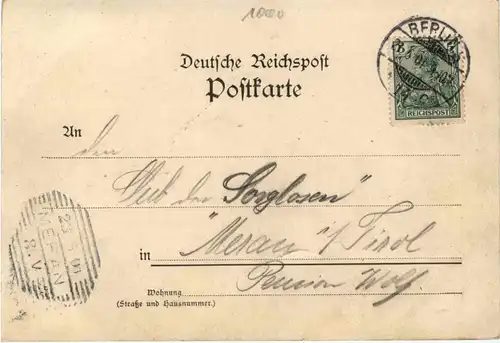 1000
BERLIN
Deutsche Reichspost
Postkarte
REICHSPOST
An
den
"Club der Sorglosen"
in "Meran" i/Tirol
Pension Wolf.
Wohnung
(Straße und Hausnummer.)
MERAN